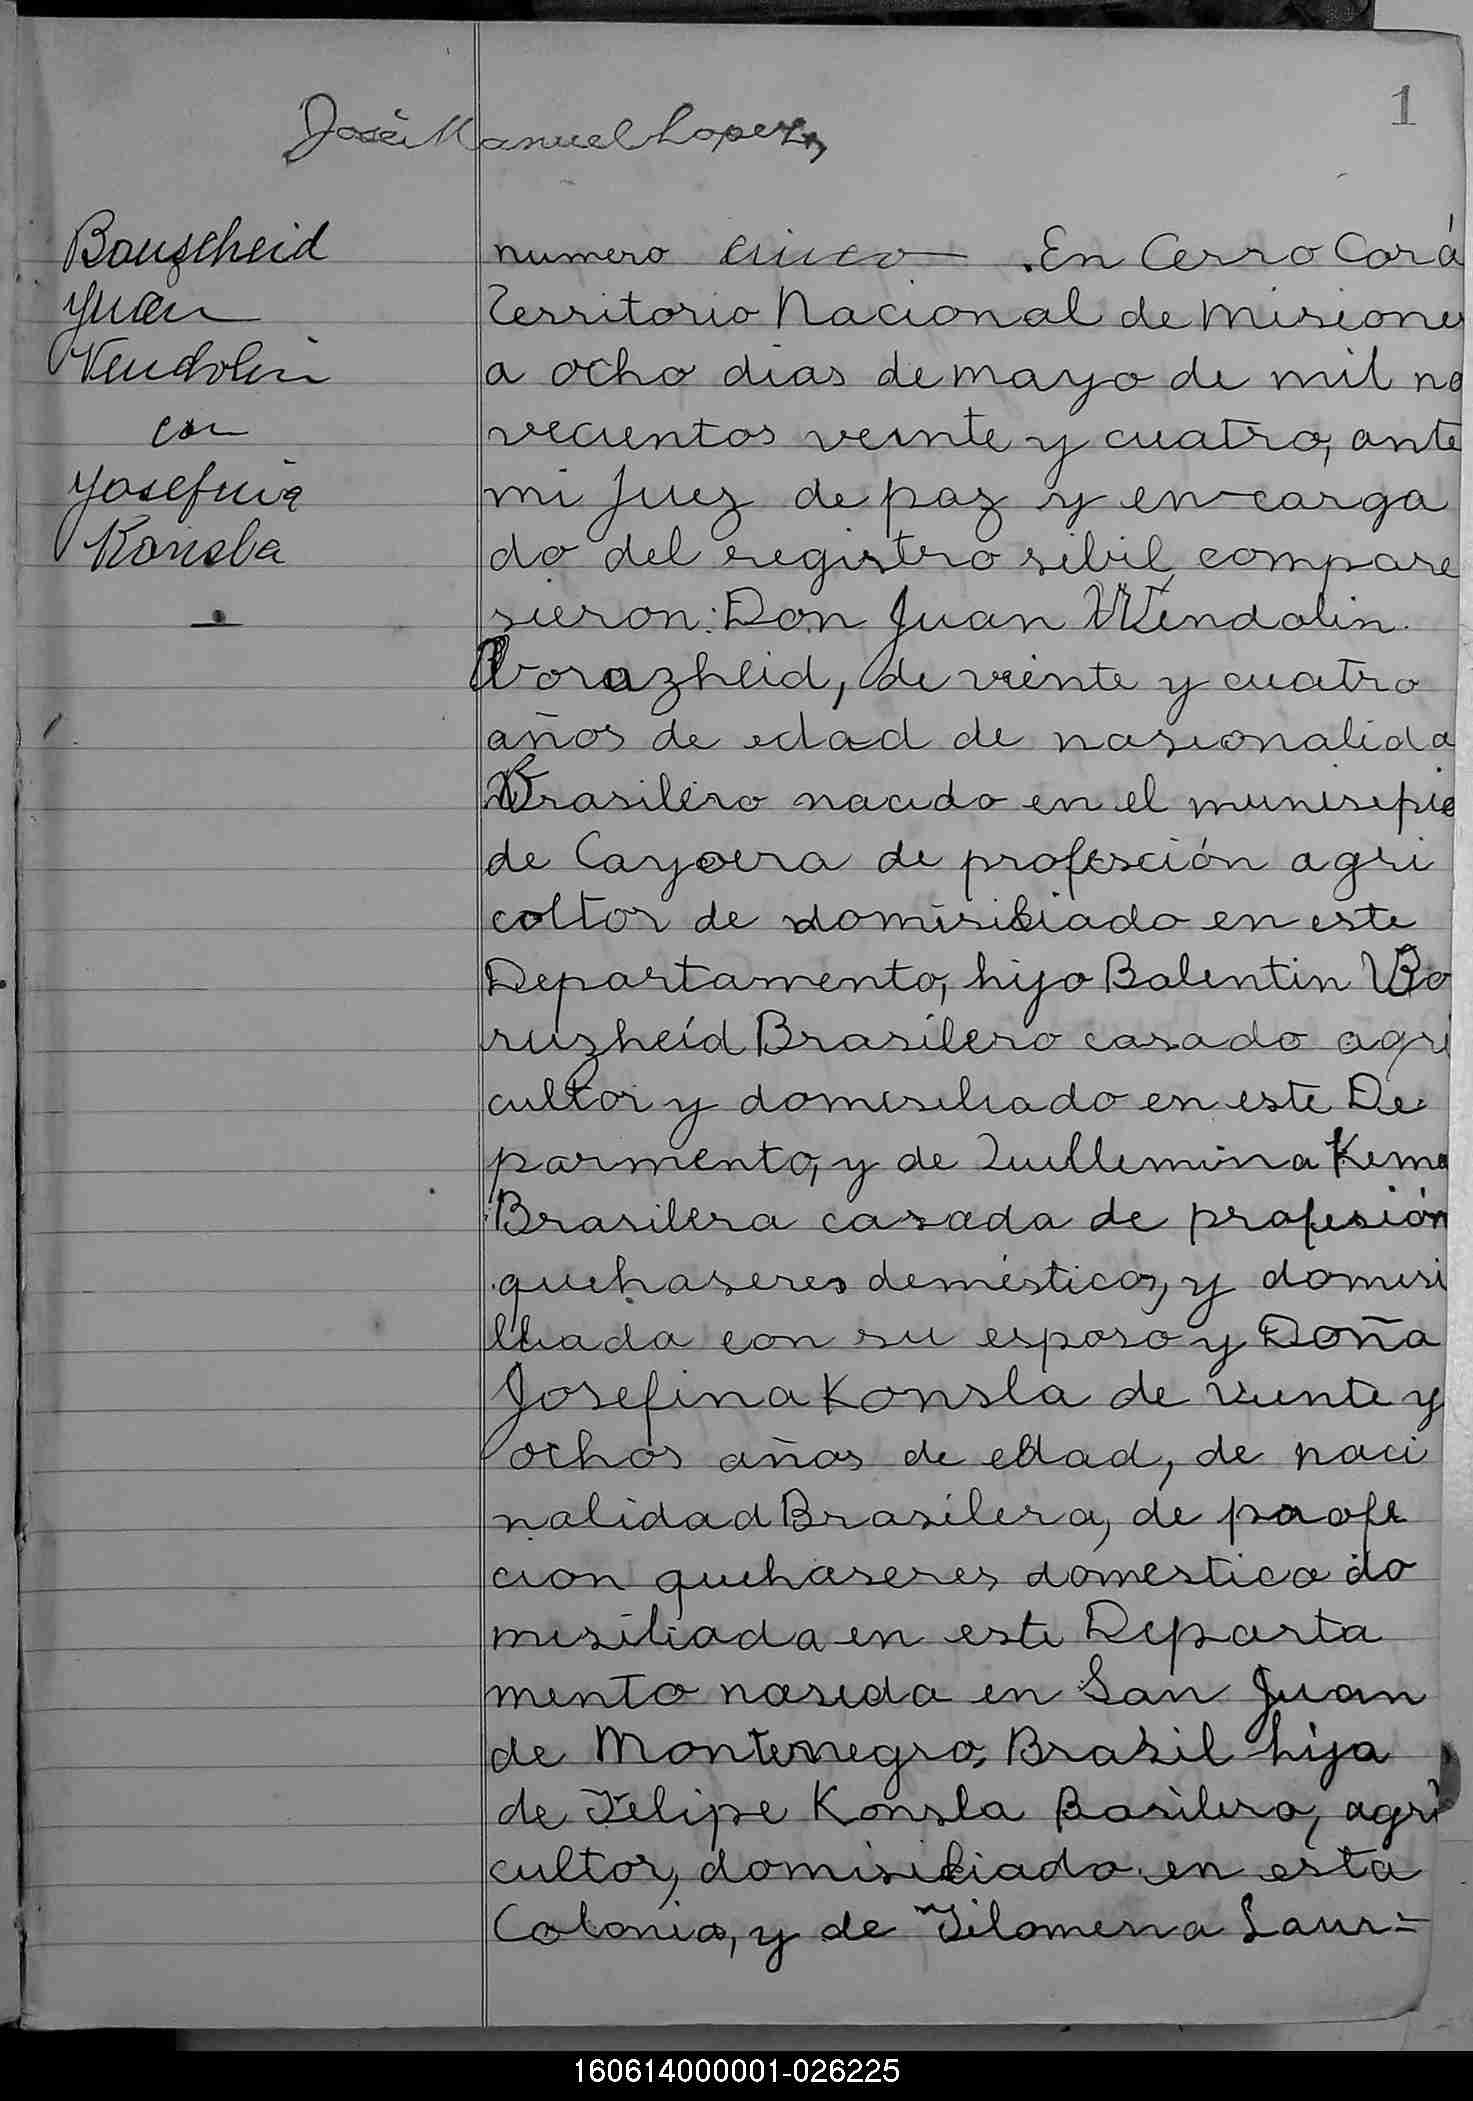 1
José Manuel Lopez
Bouscheid
Juan
Vendolin
con
Josefina
Konsla
numero cinco . En Cerro Corá
Territorio Nacional de Misiones
a ocho dias de mayo de mil no
vecientos veinte y cuatro, ante
mi Juez de paz y encarga
do del registro sibil compare
sieron: Don Juan Wendalin
de veinte y cuatro
años de edad de nasionalida
Brasilero nacido en el munisipio
de Cayoera de profesción agri
coltor de domisiliado en este
Departamento, hijo Balentin Bo
ruzheid Brasilero casado agri
cultor y domisiliado en este De
parmento, y de Kema
Brasilera casada de profesión
quehaseres deméstico, y domisi
liada con su esposo y Doña
Josefina Konsla de viente y
ochos años de edad, de naci
nalidad Brasilera, de profe
cion quehaseres domestico do
misiliada en este Departa
mento nasida en San Juan
de Montenegro, Brasil hija
de Felipe Konsla Basilero, agri
cultor, domisiliado en esta
Colonia, y de Filomena Laur=
160614000001-026225